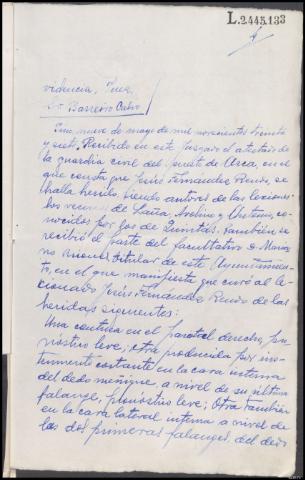 L.2445.133
videncia, Juez
Sr. Barreiro Calvo
Pino nueve de mayo de mil novecientos treinta
y siete. Recibido en este Juzgado el atestado de
la guardia civil del puesto de Arca, en el
que consta que Jesús Fernández Rendo, se
halla herido, siendo autores de las lesiones
los vecinos de Laíta, Avelino y co-
nocidos por los de Quintás. También se
recibió el parte del facultativo D. Maria-
no titular de este Ayuntamien-
to, en el que manifiesta que curó al le-
sionado Jesús Fernández Rendo de las
heridas siguientes:
Una contusa en el parietal derecho, pro-
nóstico leve; otra producida por ins-
trumento cortante en la cara interna
del dedo meñique, a nivel de su última
falange, pronóstico leve; Otra también
en la cara lateral interna a nivel de
las dos primeras falanges del dedo